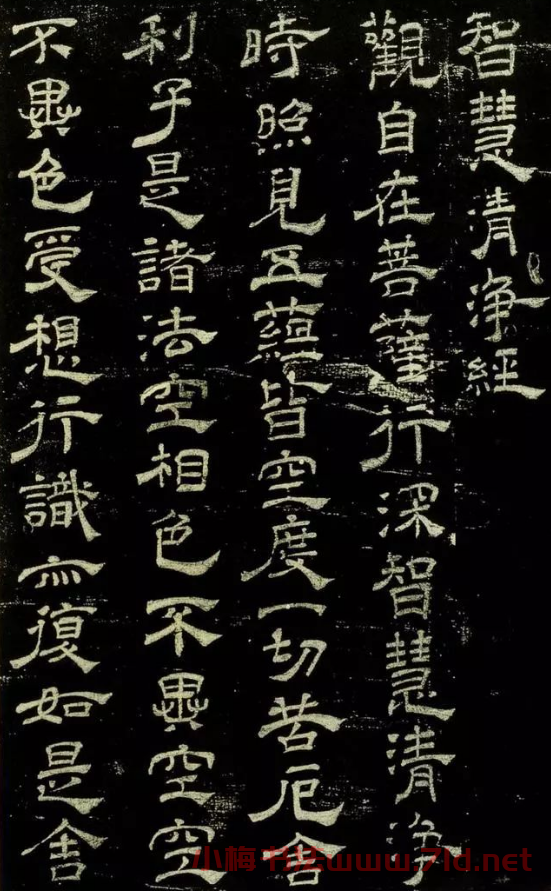 智慧清淨經
觀自在菩薩行深智慧清淨
時照見五蘊皆空度一切苦厄舍
利子是諸法空相色不異空空
不異色受想行識亦復如是舍
小梅书法www.71d.net